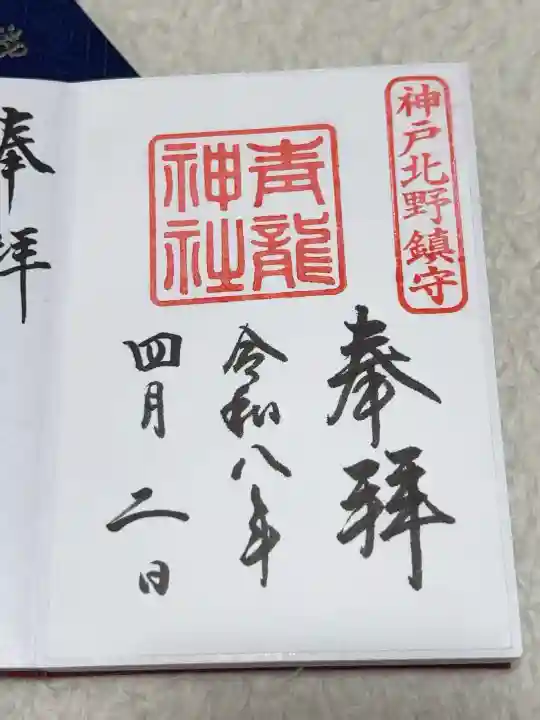 神戸北野鎮守
奉拝
青龍神社
令和八年
四月二日
奉拝